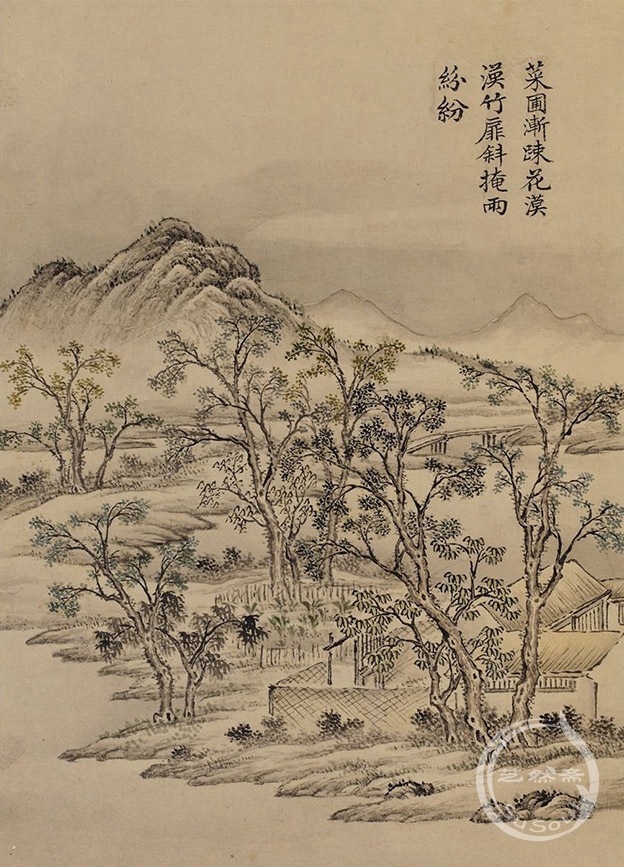 菜圃漸踈花漠
漠竹扉斜掩雨
紛紛
艺然斋